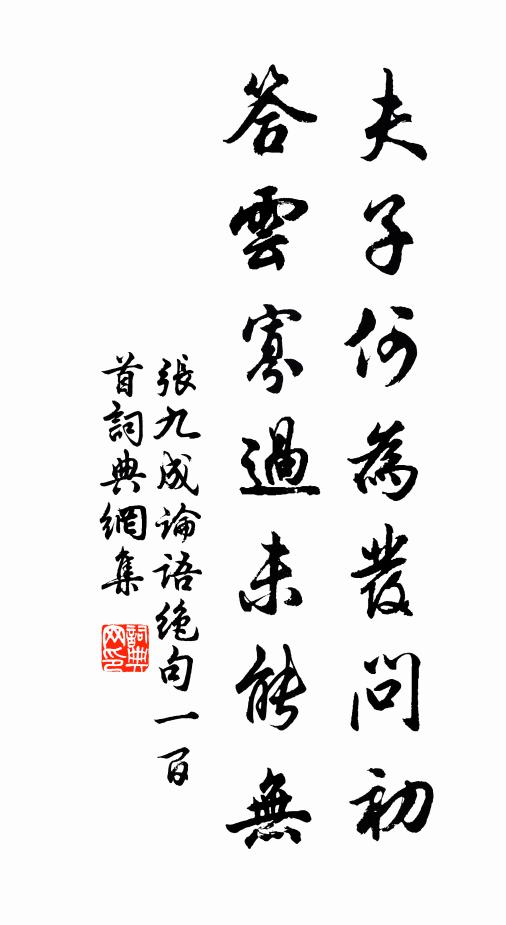 夫子何為發問初
答雲寡過未能無
張九成論語絶句一百
首詞典網集
詞典
网印